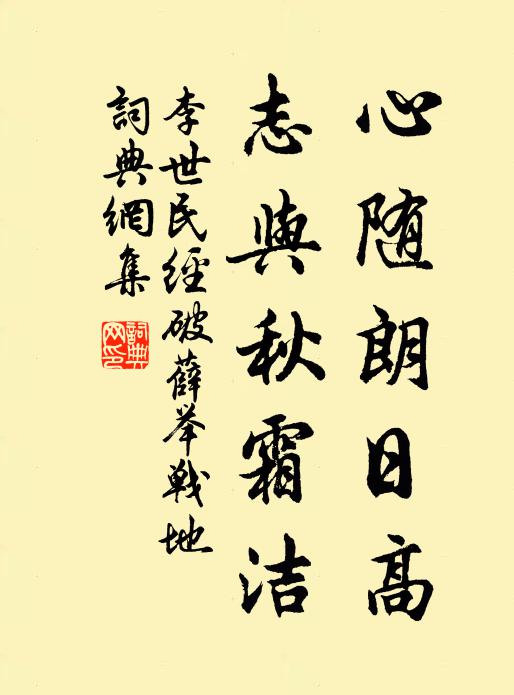 心随朗日高
志與秋霜洁
李世民經破薛举戰地
詞典網集
詞典网印